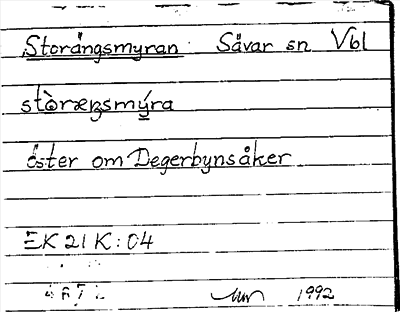 Storängsmyran Sävar sn Vbl
stòræŋsmýra
öster om Degerbynsåker
EK 21 K:04
1992